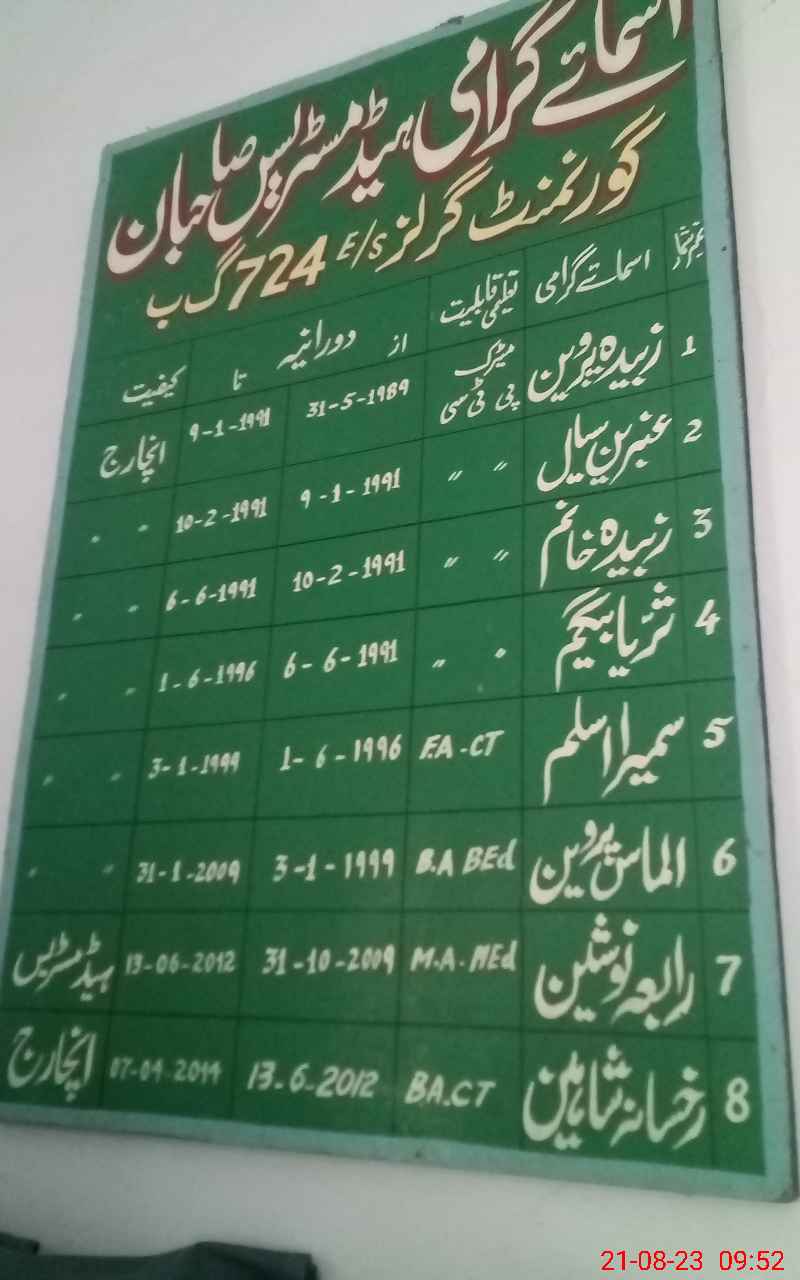 اسمائے گرامی ہیڈ مسٹریس صاحبان
گورنمنٹ گرلز E/S 724 گ ب
نمبر شمار اسمائے گرامی تعلیمی قابلیت از دورانیہ تا کیفیت
1 زبیدہ پروین میٹرک پی ٹی سی 31-5-1989 9-1-1991 انچارج
2 عنبرین سیال " " 9-1-1991 10-2-1991 " "
3 زبیدہ خانم " " 10-2-1991 6-6-1991 " "
4 ثریا بیگم " " 6-6-1991 1-6-1996 " "
5 سمیرا اسلم F.A-CT 1-6-1996 3-1-1999 " "
6 الماس پروین B.A BEd 3-1-1999 31-1-2009 " "
7 رابعہ نوشین M.A-MEd 31-10-2009 13-06-2012 ہیڈمسٹریس
8 رخسانہ شاہین BA.CT 13-6-2012 07-04-2014 انچارج
21-08-23 09:52